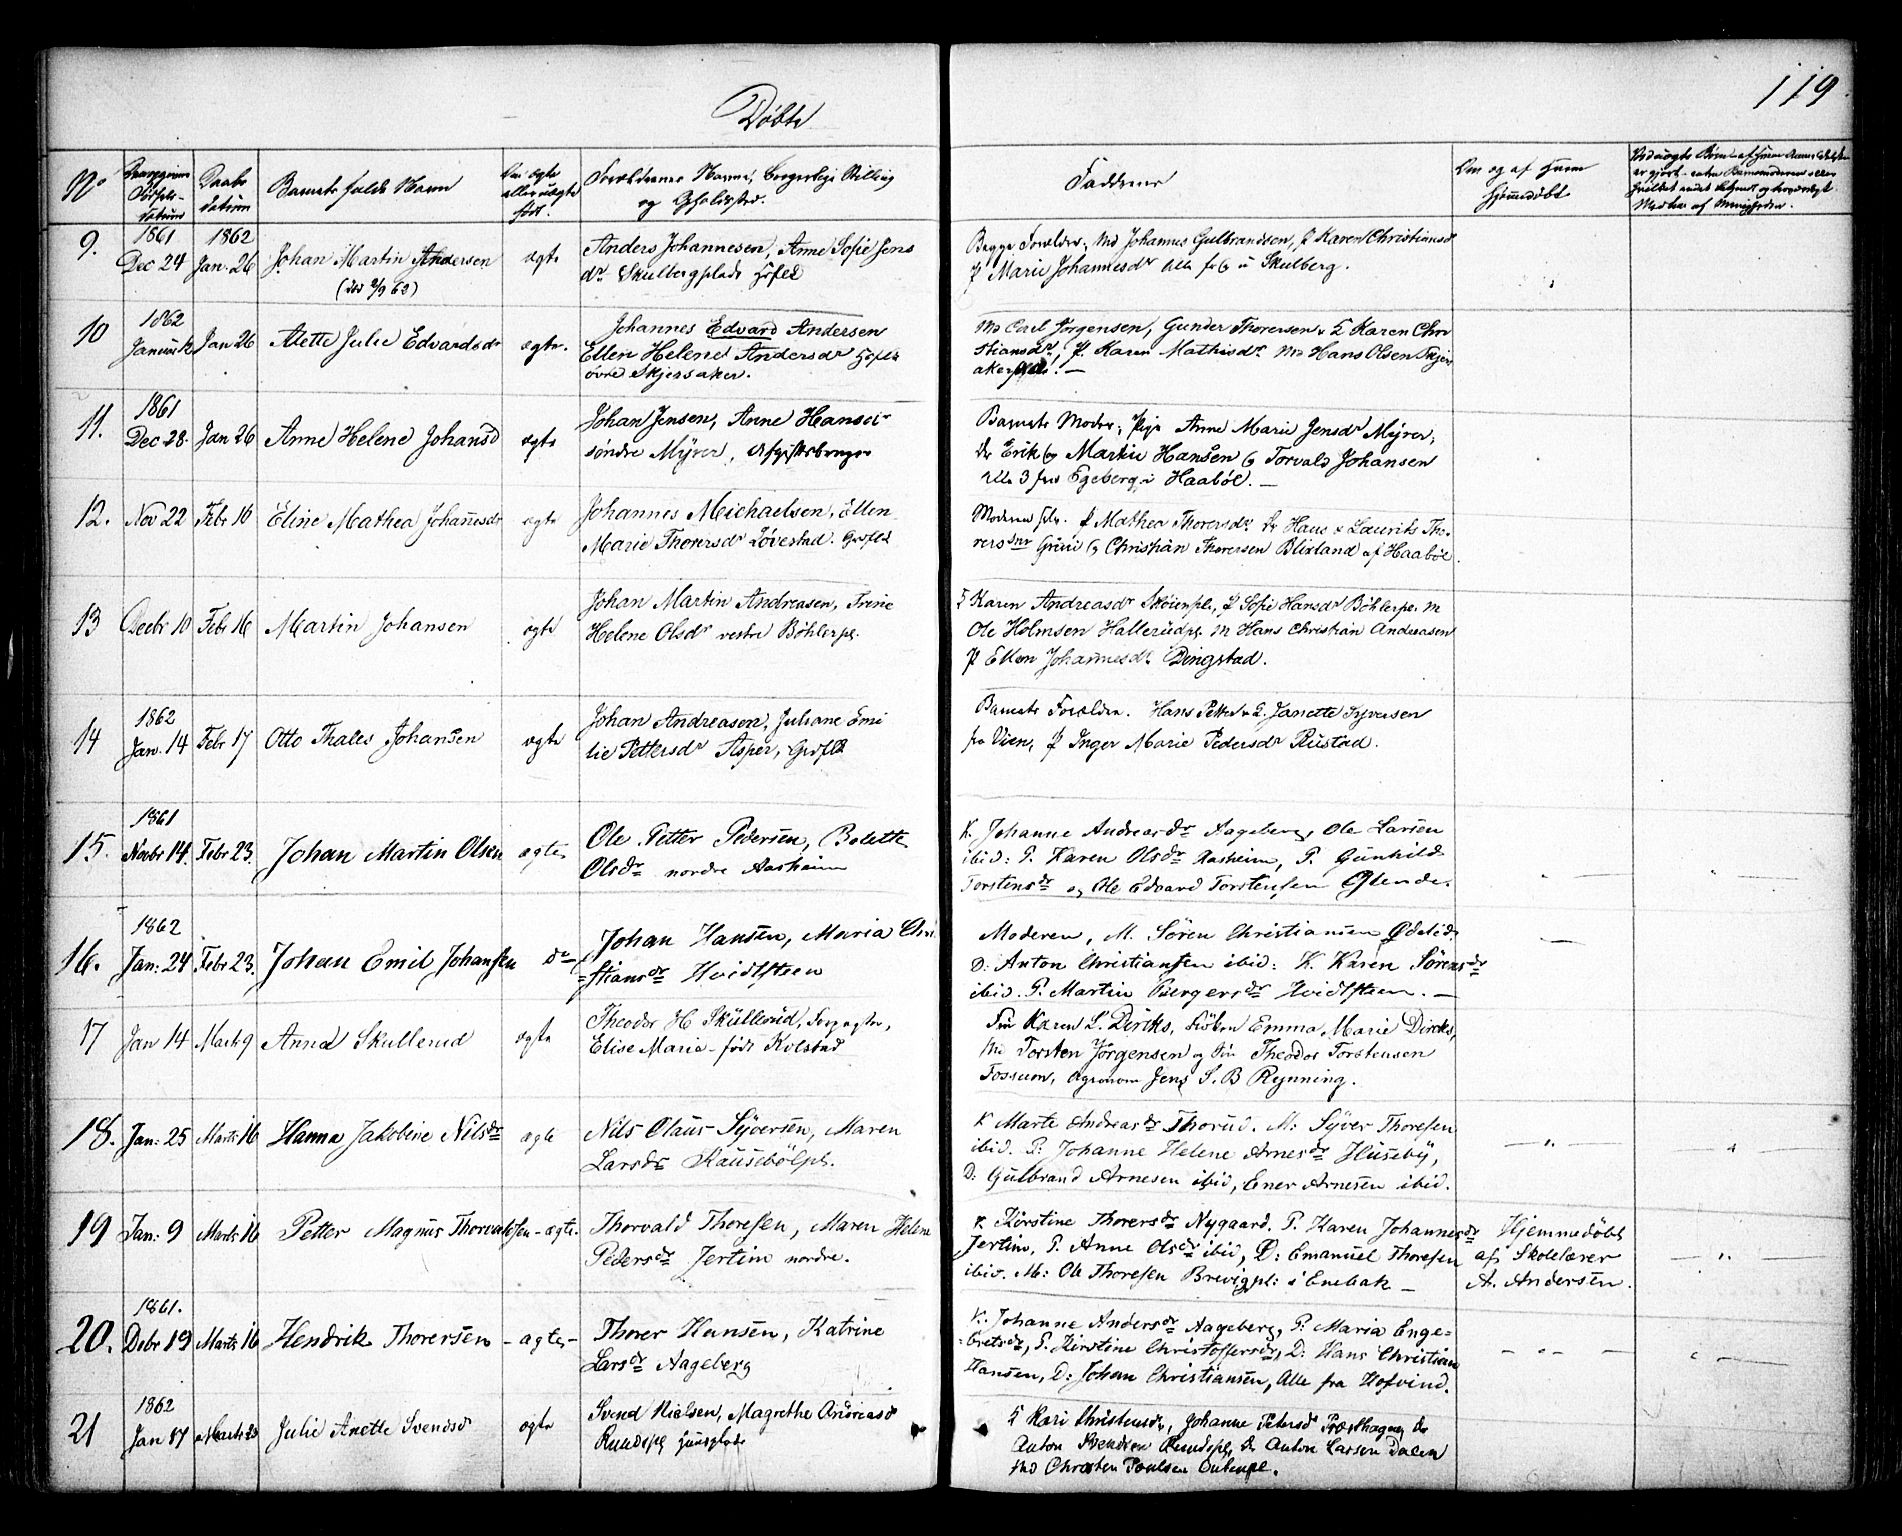 119
Døbte
No
Datum
Daabs
datum
Barnets fulde Navn
Om ægte
eller uægte
født.
Forældrenes Navne, borgerlige Stilling
og Opholdssted.
Faddere
Om og af hvem
hjemmedøbt
9.
1861
Dec 24
1862
Jan. 26
Johan Martin Andersen
ægte
Anders Johannesen, Anne Sofie Jens
dr. Skulbergplads
Begge Forældre, M Johannes Gulbrandsen, P Karen Christiansdr
P Marie Johannesdr alle fra Skulberg.
10
1862
Januar
Jan 26
Alette Julie Edvardsdr
ægte.
Johannes Edvard Andersen
Ellen Helene Andersdr
övre Skjersaker.
M Carl Jörgensen, Gunder Thorersen, K Karen Chri
stiansdr, P. Karen Mathisdr M Hans Olsen Skjers
aker
11.
1861
Dec 28.
Jan 26
Anne Helene Johansd
ægte
Johan Jensen, Anne Hansdr
søndre Mÿrer, Afgiftsbruger
Barnets Moder, Pige Anne Marie Jensdr Mÿrer,
Dr Erik og Martin Hansen og Torvald Johansen
alle 3 fra Egeberg i Haaböl. —
12.
Nov 22
Febr 16
Eline Mathea Johannesdr
ægte
Johannes Michaelsen, Ellen
Marie Thorersdr Lövestad.
Moderen selv. P Mathea Thorersdr Dr Hans & Laurits Tho-
rers snr og Christian Thoresen Blixland af Haaböl.
13
Decbr 10
Febr 16
Martin Johansen
ægte
Johan Martin Andreasen, Trine
Helene Olsdr vestre Böhlerpl.
K Karen Andreasdr Skoienpl., K Sofie Hansdr Böhlerpl. M
Ole Holmsen Hallerudpl. M Hans Christian Andreasen
P Ellen Johannesdr Dingstad.
14
1862
Jan. 14
Febr 17
Otto Thales Johansen
ægte
Johan Andreasen, Juliane Emi
lie Pettersdr Asper,
Barnets Forældre. Hans Petter & K. Janette Syversen
fra Vien, P Inger Marie Pedersdr Rustad.
15.
1861
Novbr 14.
Febr 23.
Johan Martin Olsen
ægte
Ole Petter Pedersen, Bolette
Olsdr nordre Aasheim
K. Johanne Andreasdr Aageberg, Ole Larsen
ibid: P. Karen Olsdr Aasheim, P. Gunhild
Torstensdr og Ole Edvard Torstensen Glende.
16.
1862
Jan: 24
Febr 23.
Johan Emil Johansen
do
Johan Hansen, Maria Chri
stiansdr Hvidtsteen
Moderen, M. Sören Christiansen Ødelid.
D: Anton Christiansen ibid: K. Karen Sörensdr
ibid. P. Martin Bergersdr Hvidtsteen. —
17
Jan 14
Marts 9
Anna Skullerud
ægte
Theodor H Skullerud, Forpagter,
Elise Maria født Kolstad
Fru Karen L. Dircks, Frøken Emma Marie Dircks,
M Torsten Jörgensen og Theodor Torstensen
Fossum, Agronom Jens S. B Rynning.
18.
Jan: 25
Marts 16
Hanna Jakobine Nilsdr
ægte
Nils Olaus Syversen, Maren
Larsdr Kausebölpl.
K Marte Andreasdr Thorud. M: Syver Thoresen
ibid. P: Johanne Helene Arnesdr Huseby,
D: Gulbrand Arnesen ibid, Ener Arnesen ibid.
19
Jan: 9
Marts 16
Petter Magnus Thorvaldsen
ægte.
Thorvald Thoresen, Maren Helene
Pedersdr Jertim nordre.
K. Kirstine Thorersdr Nygaard. P. Karen Johannesdr
Jertim, P. Anne Olsdr ibid, D: Emanuel Thoresen
ibid. M: Ole Thoresen Brevigpl: i Enebak —
Hjemmedöbt
af Skolelærer
A. Andersen.
20.
1861.
Debr 19
Marts 16
Hendrik Thorersen
ægte
Thorer Hansen, Katrine
Larsdr Aageberg
K. Johanne Andersdr Aageberg, P. Maria Enge-
bretsdr, P. Kirstine Christoffersdr, D: Hans Christian
Hansen, D: Johan Christiansen, Alle fra Hofvind.
21
1862
Jan 17
Marts 23
Julie Anette Svendsd
ægte
Svend Nielsen, Magrethe Andreasd
Rundspl
K Kari Christensdr, Johanne Petersd Dr
Anton Svendsen Rundspl, Dr Anton Larsen Dalen
M Christen Poulsen